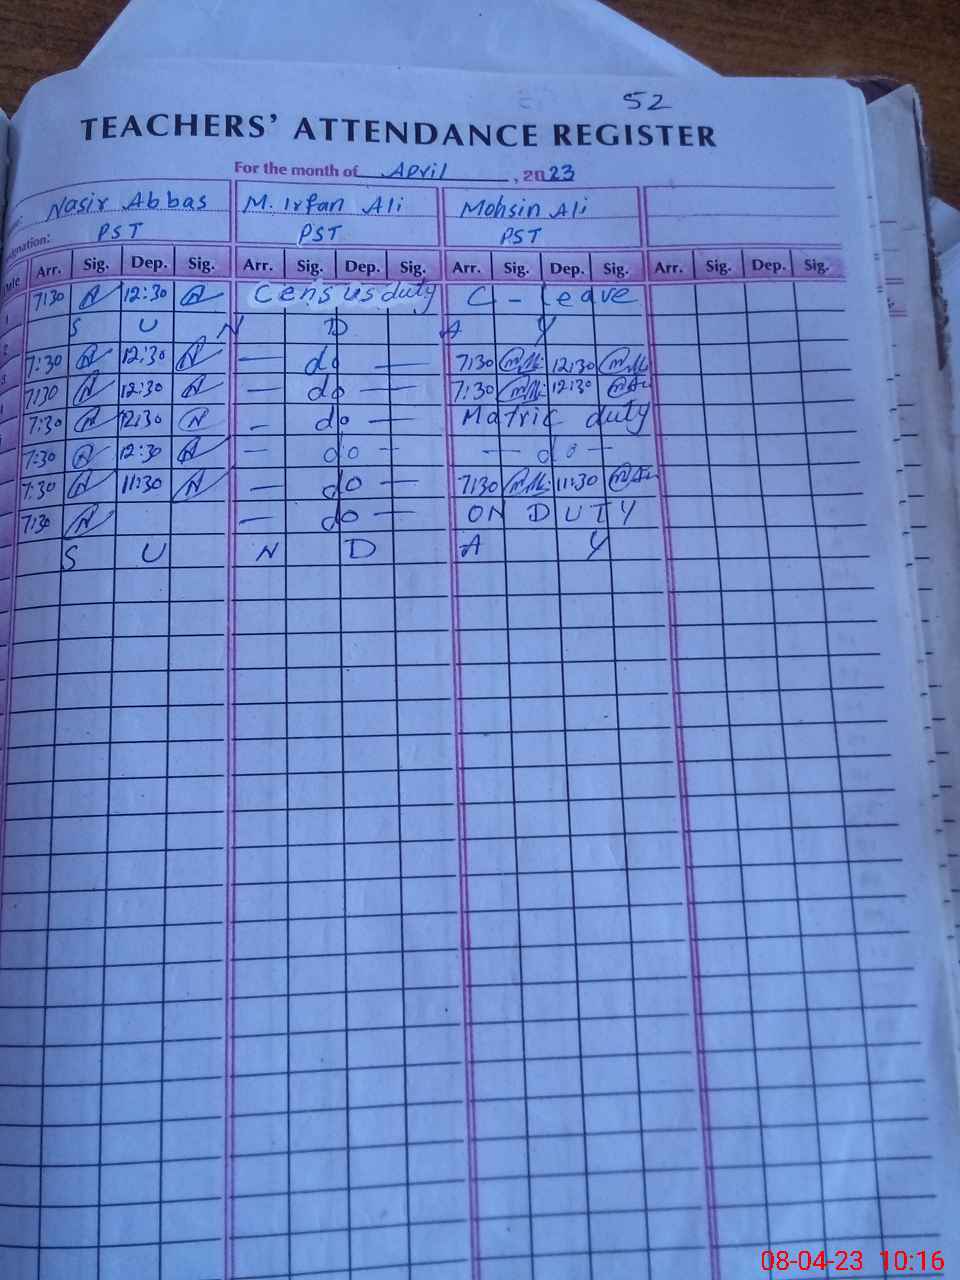 52
TEACHERS' ATTENDANCE REGISTER
For the month of April, 2023
Nasir Abbas M. Irfan Ali Mohsin Ali
PST PST PST
Arr. Sig. Dep. Sig. Arr. Sig. Dep. Sig. Arr. Sig. Dep. Sig. Arr. Sig. Dep. Sig.
7:30 12:30 Census duty C - leave
S U N D A Y
7:30 12:30 — do — 7:30 12:30
7:30 12:30 — do — 7:30 12:30
7:30 12:30 — do — Matric duty
7:30 12:30 — do — — do —
7:30 11:30 — do — 7:30 11:30
7:30 — do — ON DUTY
S U N D A Y
08-04-23 10:16